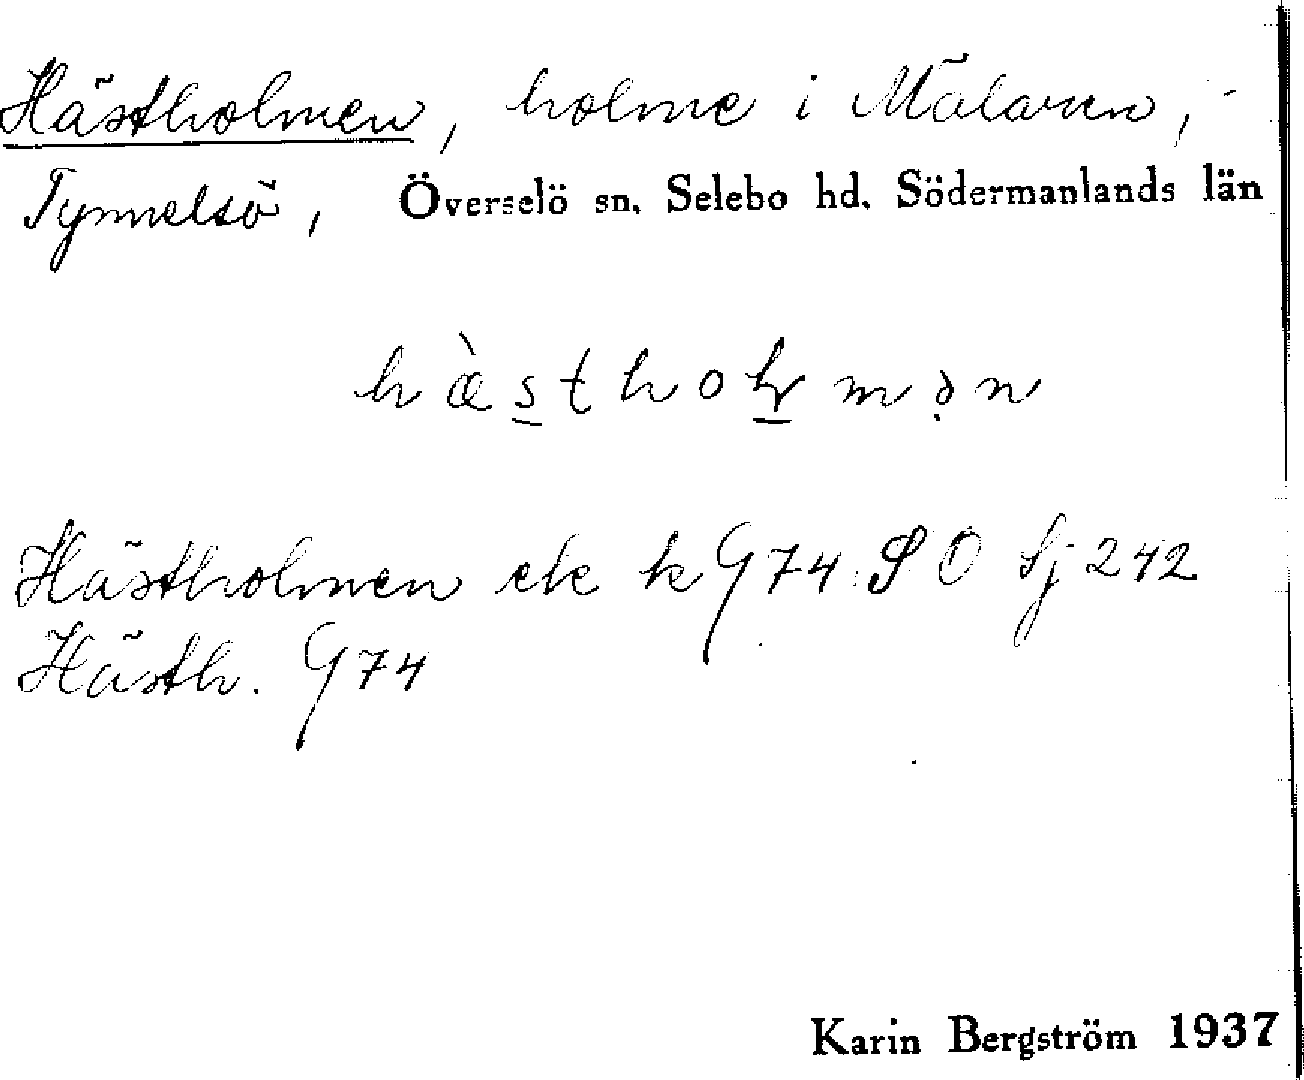 Hästholmen, holme i Mälaren,
Tynnelsö, Överselö sn. Selebo hd. Södermanlands län
Hästholmen ek k G74: SO Sj 242
Hästh. G74
Karin Bergström 1937